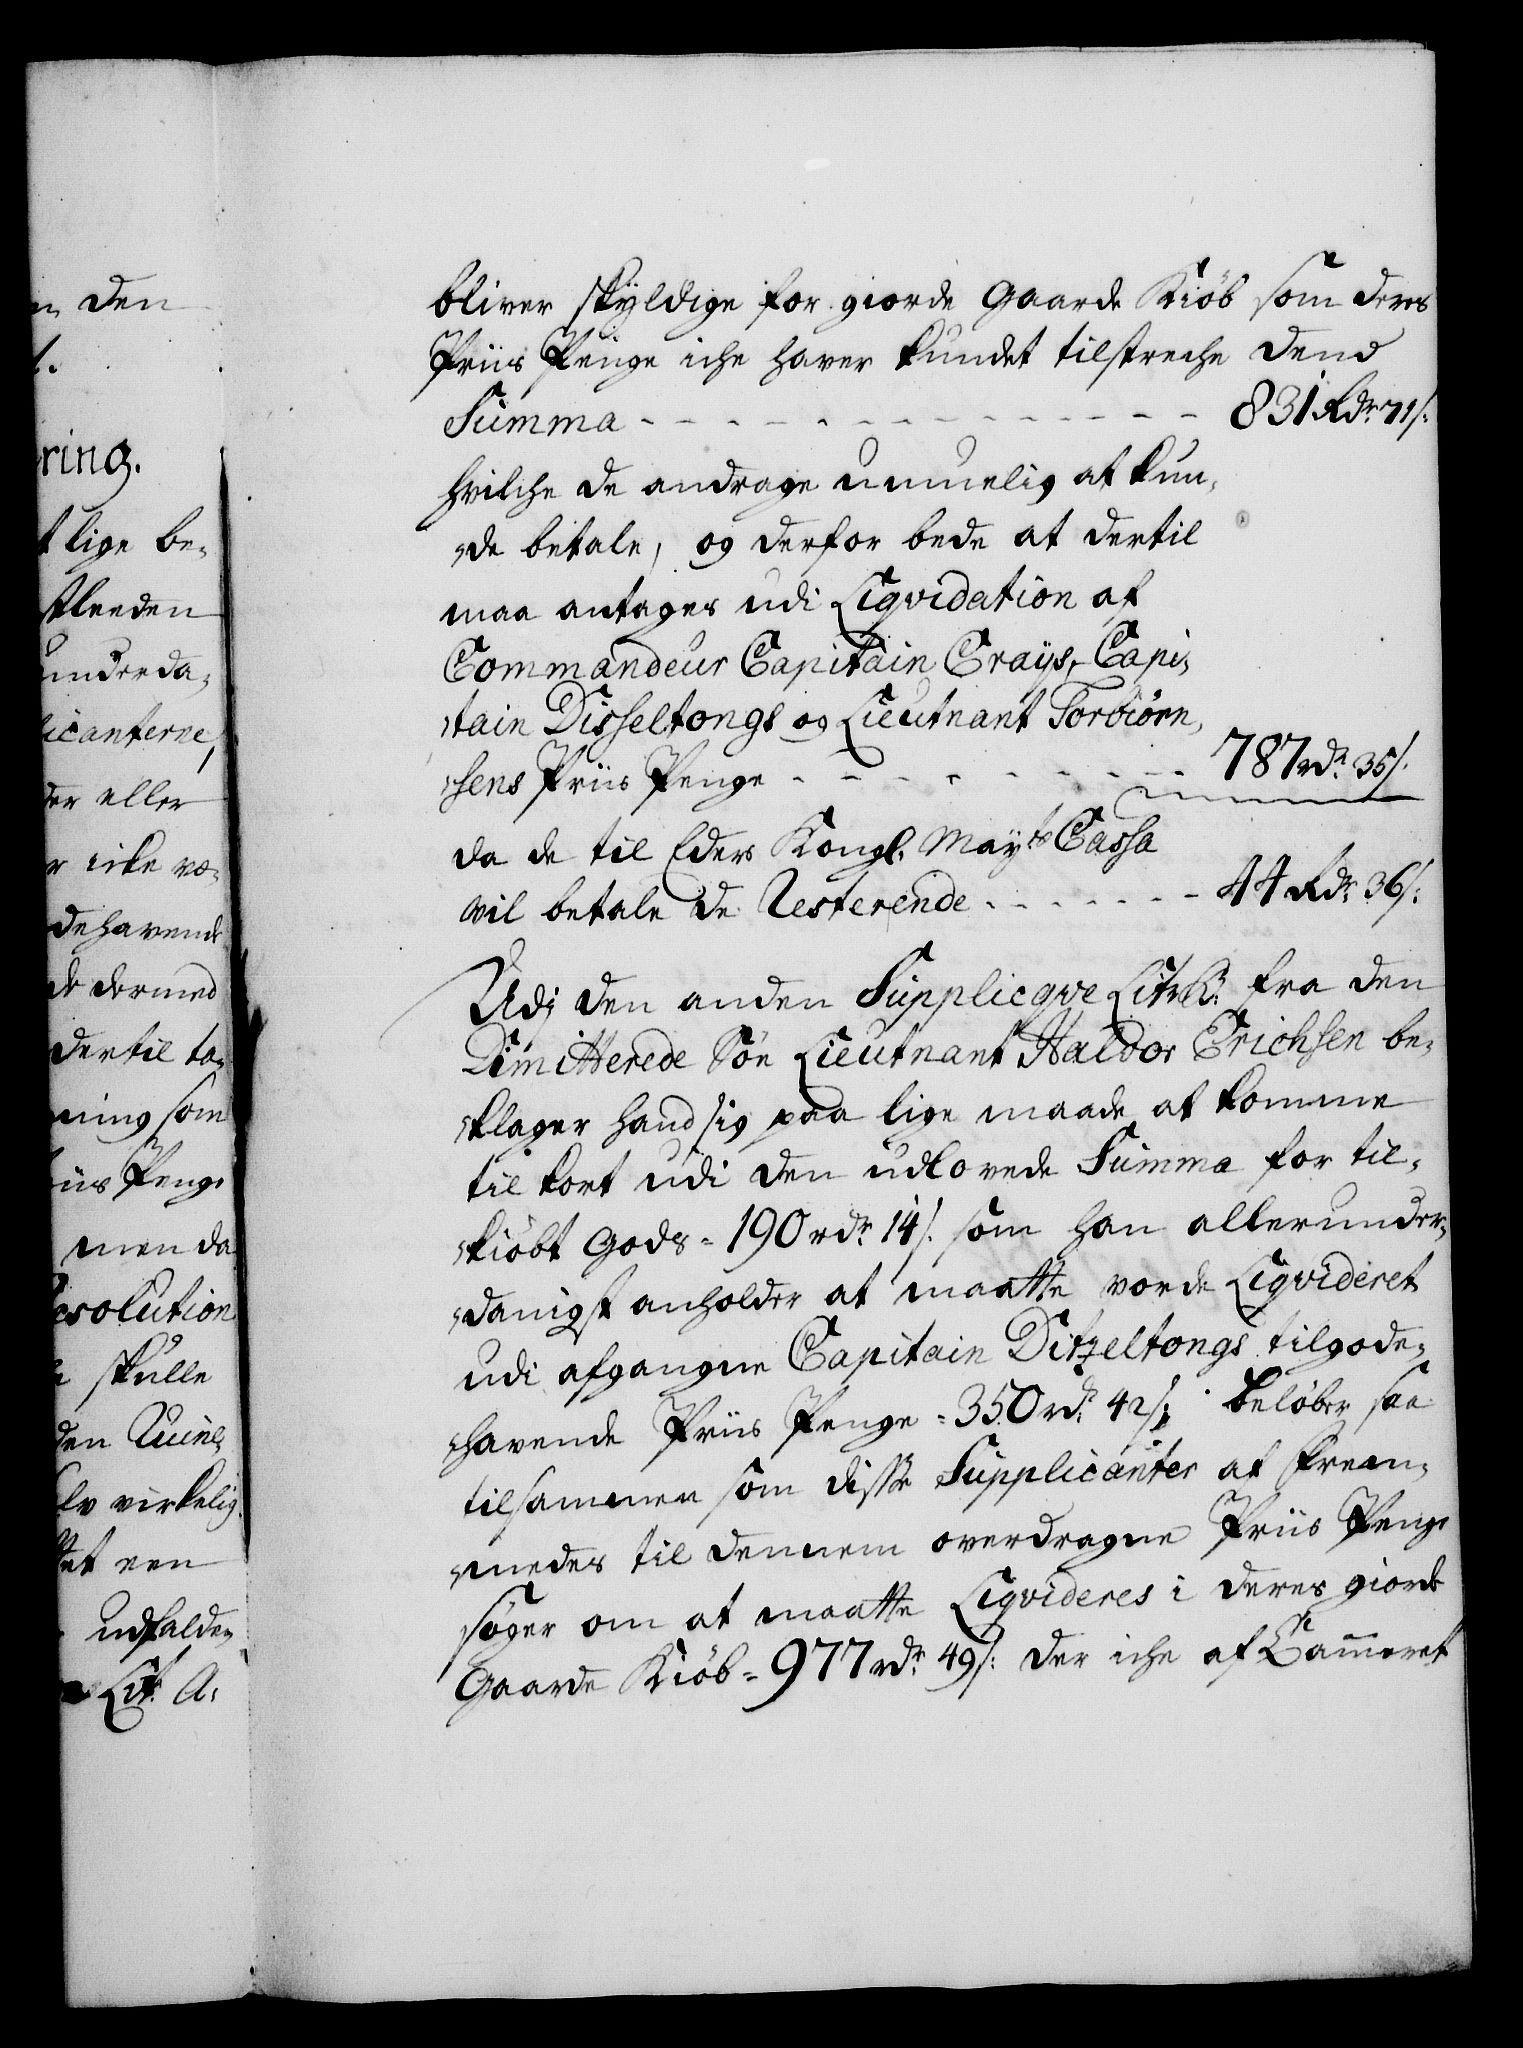 n den
t.
ring.
t lige be-
under da-
licanterne,
der eller
r icke væ-
dehavende
de dermed
dertil ta-
ning som
riis Penge
men da
Resolution
skulle
den Ruine,
elv virkelig
tet een
udfalden
Lit: A:
bliver skyldige for giorde Gaarde Kiöb som deres
Priis Penge iche haver kundet tilstreche dend
Summa - - - - - - - - - - - - - - - 831 Rdr. 71 s:
hvilche de andrage umuelig at kun-
de betale, og derfor bede at dertil
maa antages udi Liqvidation af
Commandeur Capitain Crays, Capi-
tain Disseltongs og Lieutnant Torbiörn-
sens Priis Penge - - - - - - - - - - 787 rdr. 35 s.
da de til Eders Kongl. Mayts Cassa
vil betale de Resterende - - - - - - - 44 Rdr. 36 s:
Udj den anden Supplicqve Litr B: fra den
Dimitterede Söe Lieutnant Haldor Erichsen be-
klager hand sig paa lige maade at komme
til kort udi den udlovede Summa for til-
kiöbt Gods = 190 rdr. 14 s. som han allerunder-
danigst anholder at maatte vorde Liqvideret
udi afgangne Capitain Ditzeltongs tilgode-
havende Priis Penge = 350 rdr. 42 s; beløber saa
tilsammen som disse Supplicanter af frem-
medes til dennem overdragne Priis Penge
söger om at maatte Liqvideres i deres giorde
Gaarde Kiöb = 977 rdr. 49 s: der iche af Cammeret